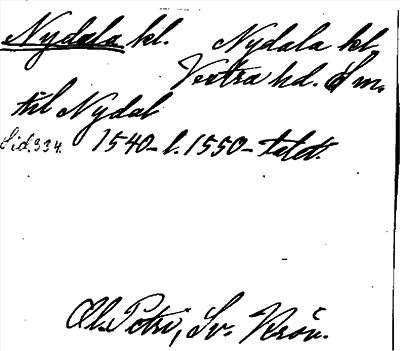 Nydala kl. Nydala kl.
Vestra hd. Sm.
till Nydal
Sid. 334. 1540-t. 1550-talet.
Ol. Petri, Sv. Krön.